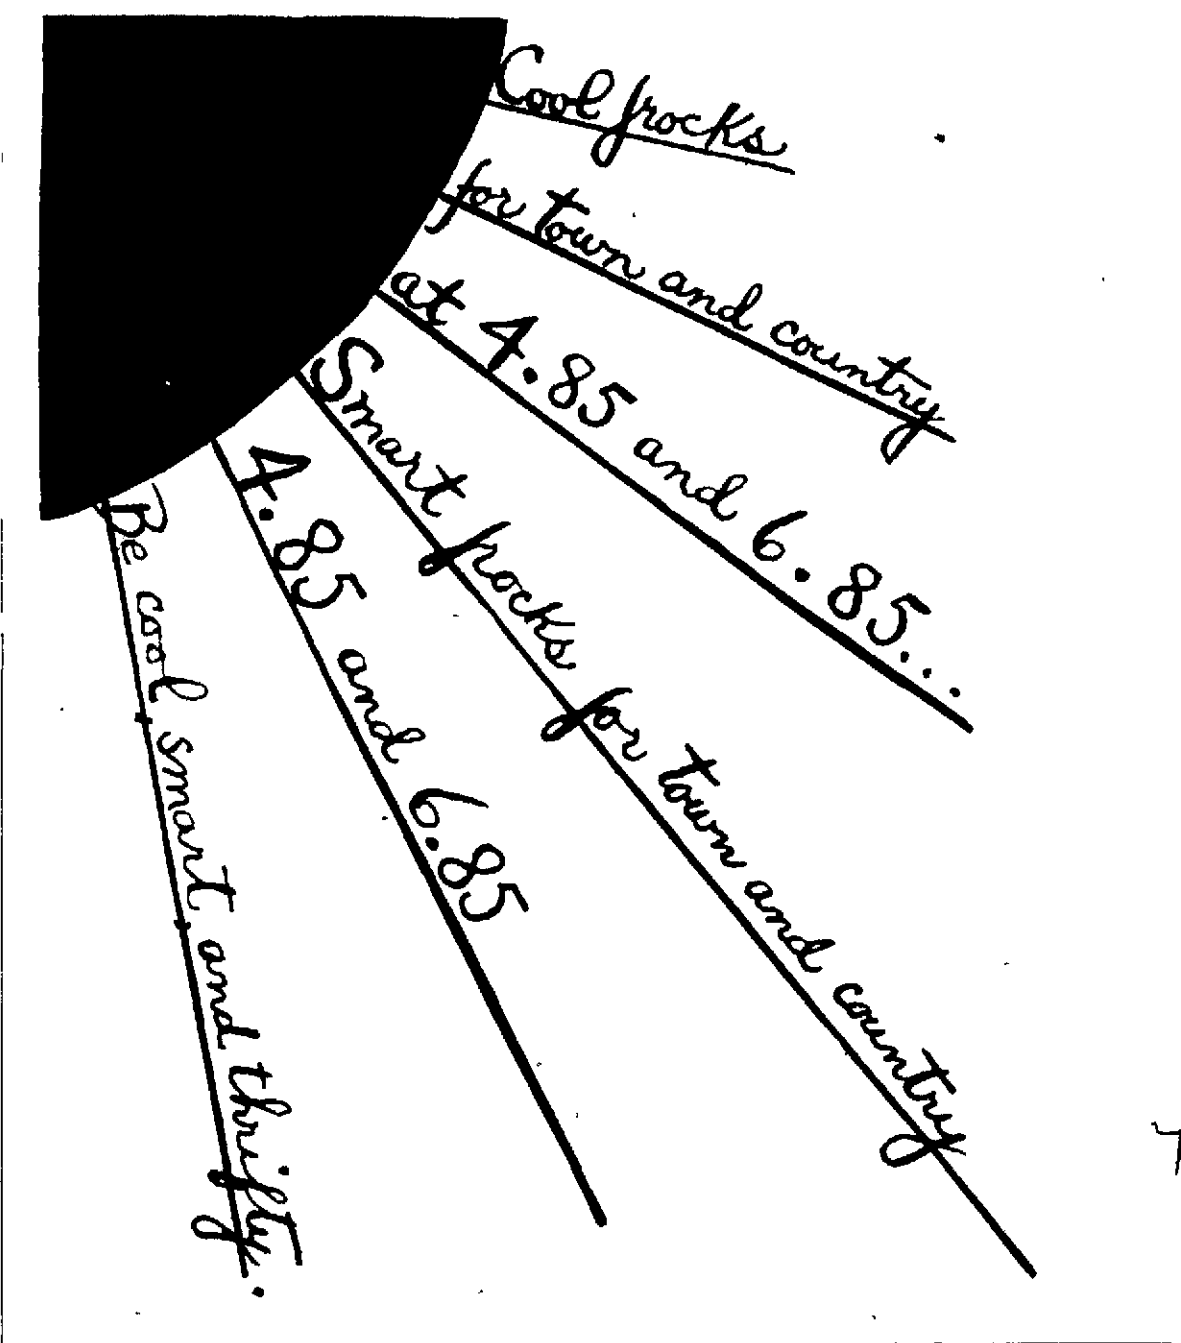 Cool frocks
for town and country
at 4.85 and 6.85...
Smart frocks for town and country
4.85 and 6.85
Be cool, smart, and thrifty.